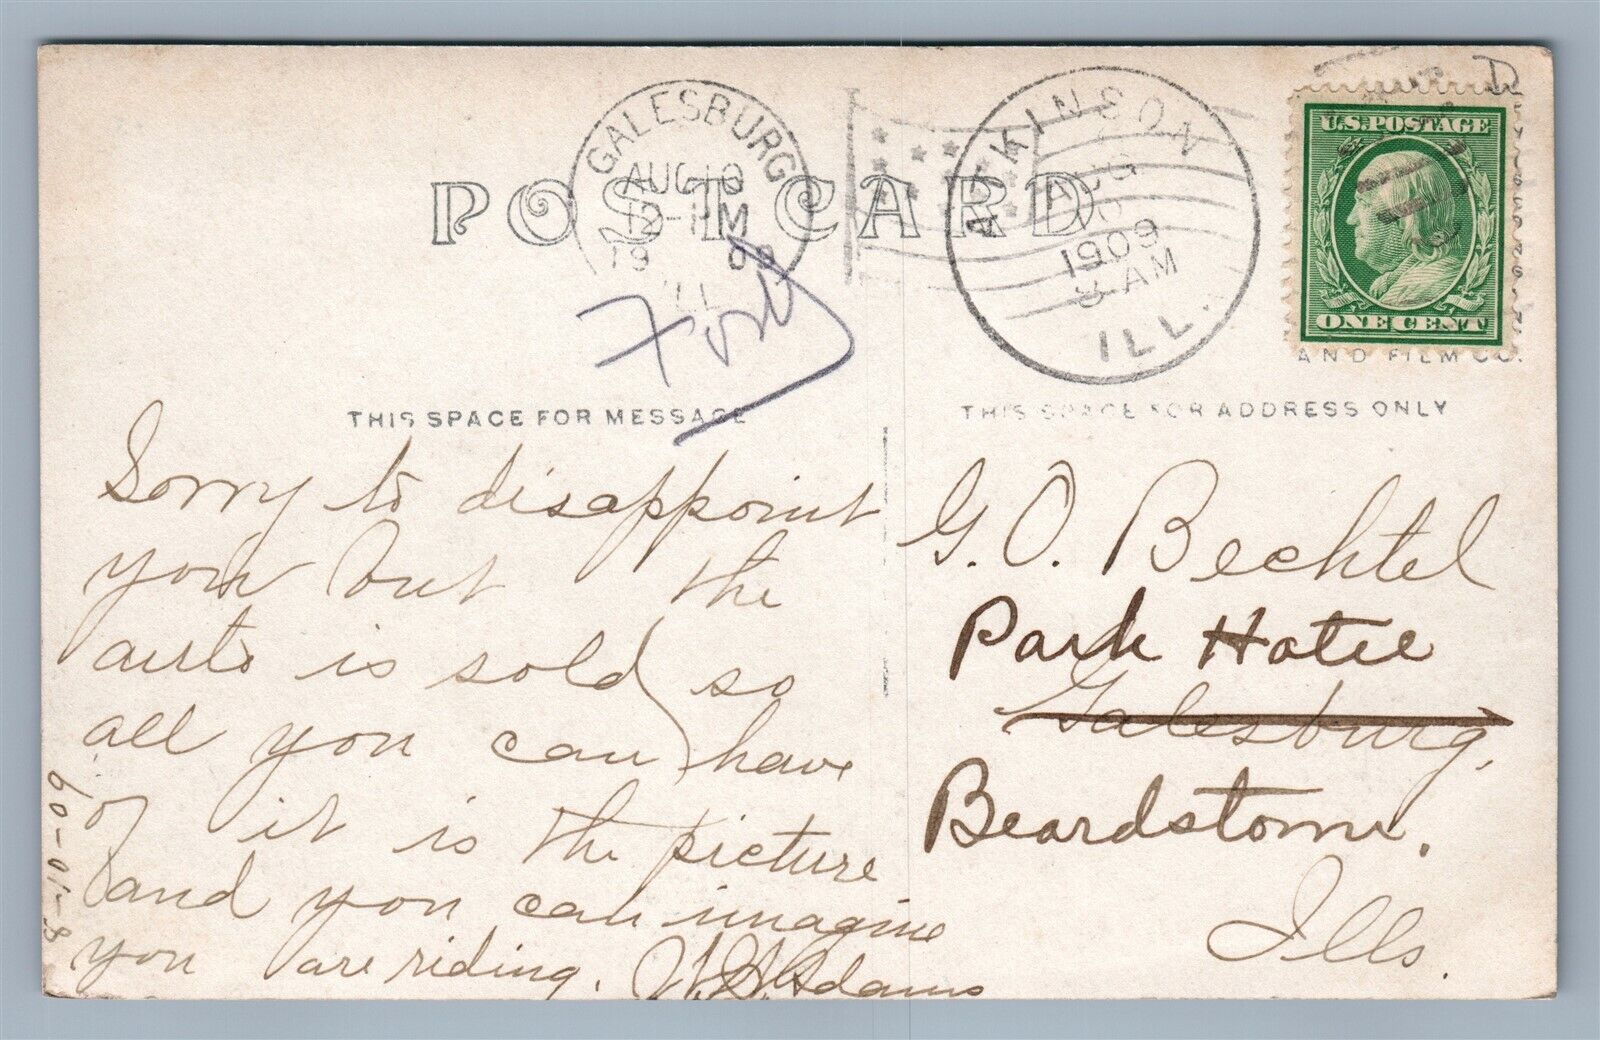 GALESBURG
AUG 10
12-PM
1909
ILL
ATKINSON
AUG
1909
8 AM
ILL.
U.S. POSTAGE
ONE CENT
POST CARD
AND FILM CO.
THIS SPACE FOR MESSAGE
THIS SPACE FOR ADDRESS ONLY
Sorry to disappoint
you but the
auto is sold so
all you can have
of it is the picture
and you can imagine
you are riding. Adams
8-10-09
G. O. Bechtel
Park Hotel
Galesburg,
Beardstown.
Ills.